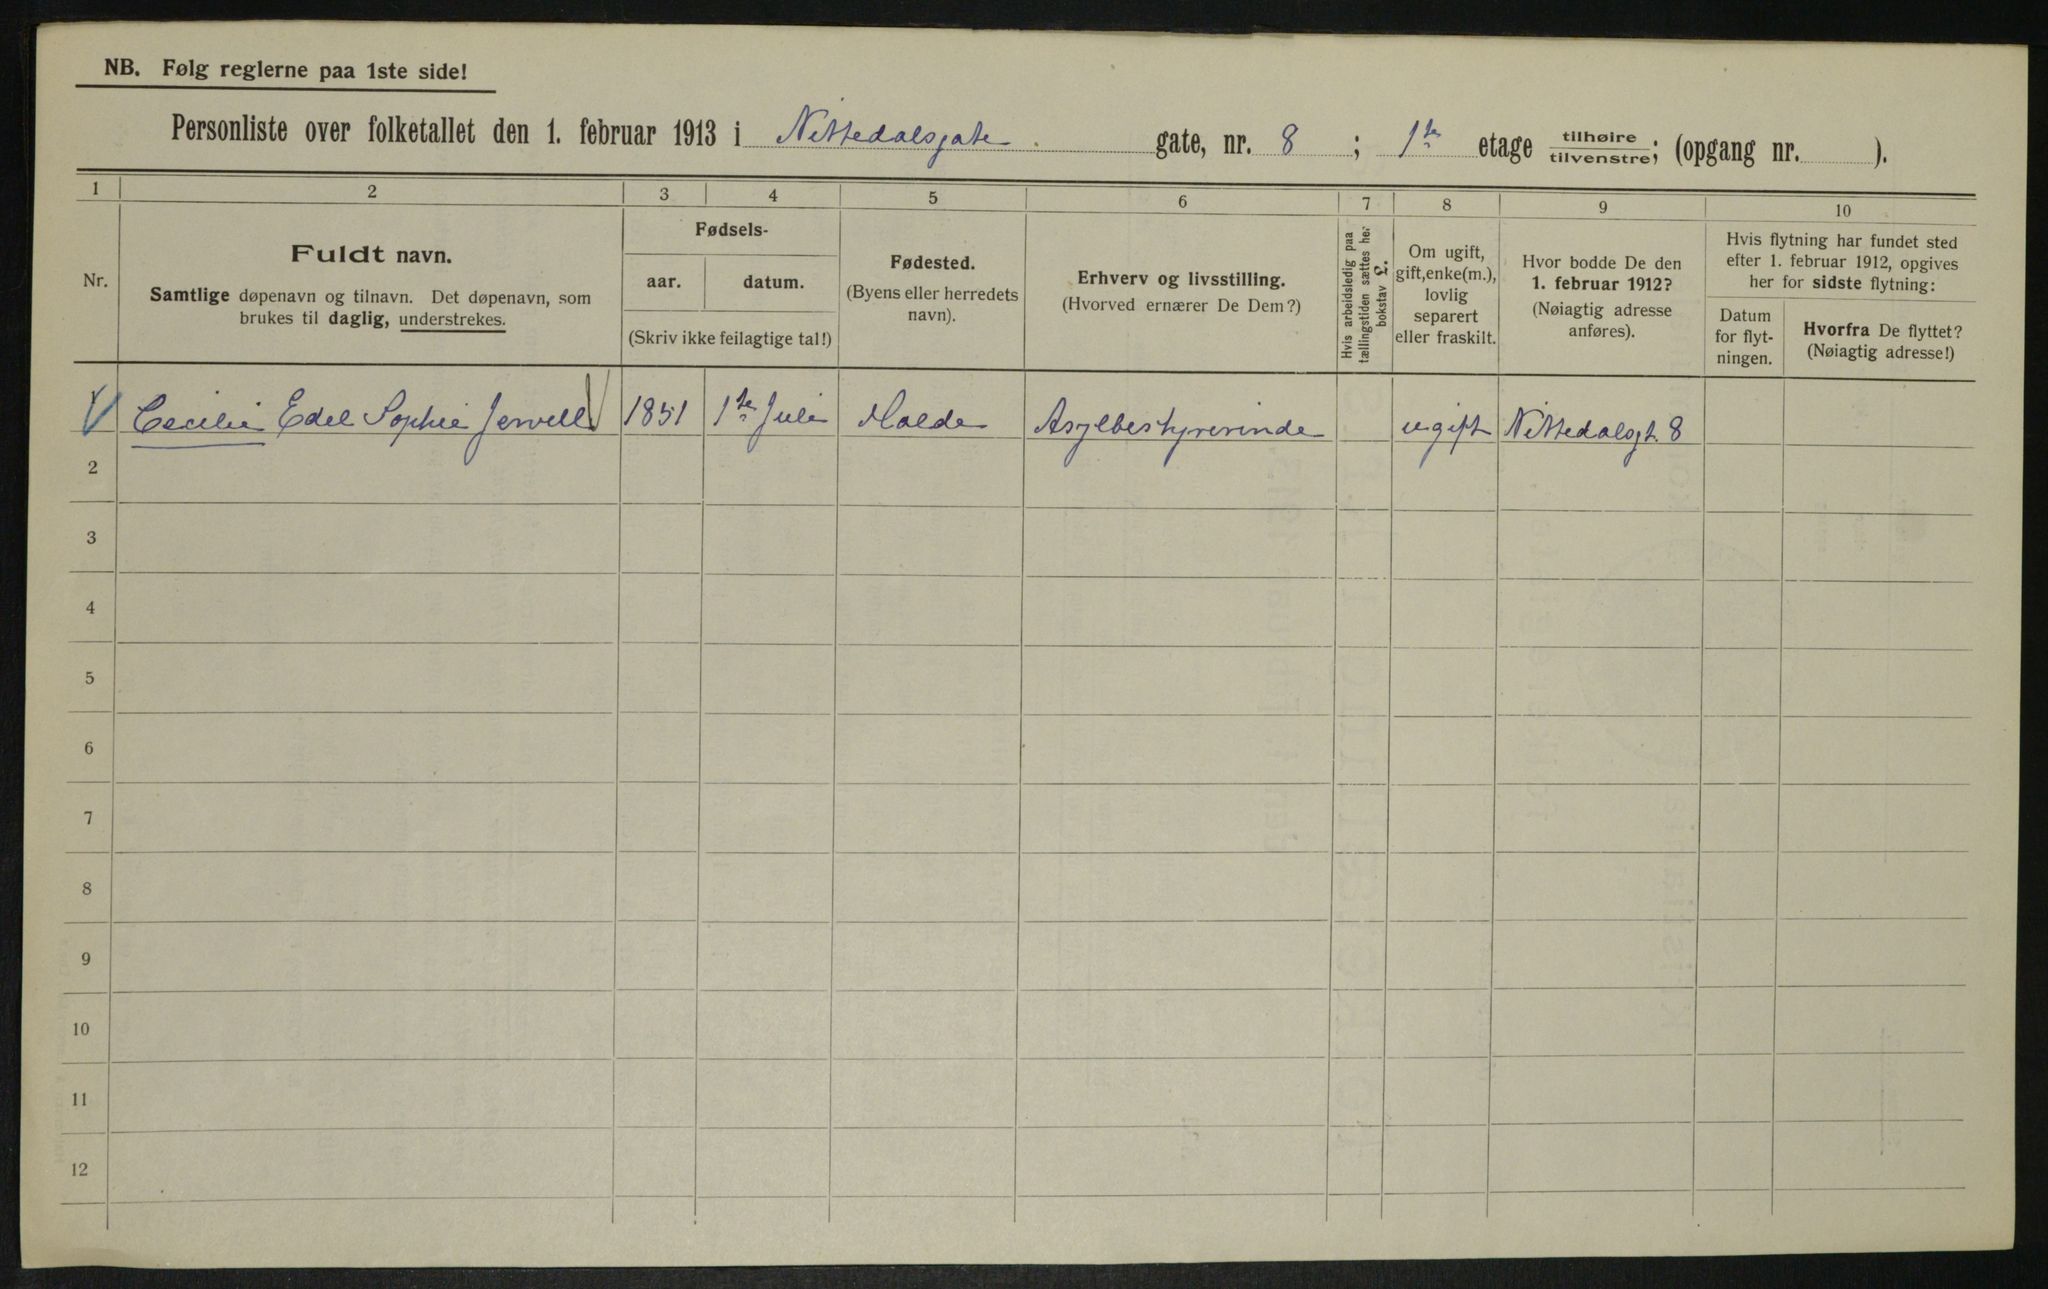 NB. Følg reglerne paa 1ste side!
Personliste over folketallet den 1. februar 1913 i Nittedalsgate gate, nr. 8 ; 1ste etage tilhøire/tilvenstre; (opgang nr. ).
1 2 3 4 5 6 7 8 9 10
Nr.
Fuldt navn.
Samtlige døpenavn og tilnavn. Det døpenavn, som
brukes til daglig, understrekes.
Fødsels-
aar. datum.
(Skriv ikke feilagtige tal!)
Fødested.
(Byens eller herredets
navn).
Erhverv og livsstilling.
(Hvorved ernærer De Dem?)
Hvis arbeidsledig paa
tællingstiden sættes her
bokstav £.
Om ugift,
gift, enke(m.),
lovlig
separert
eller fraskilt.
Hvor bodde De den
1. februar 1912?
(Nøiagtig adresse
anføres).
Hvis flytning har fundet sted
efter 1. februar 1912, opgives
her for sidste flytning:
Datum
for flyt-
ningen.
Hvorfra De flyttet?
(Nøiagtig adresse!)
Cecilie Edel Sophie Jervell 1851 1ste Juli Molde Asylbestyrerinde ugift Nittedalsgt. 8
2
3
4
5
6
7
8
9
10
11
12